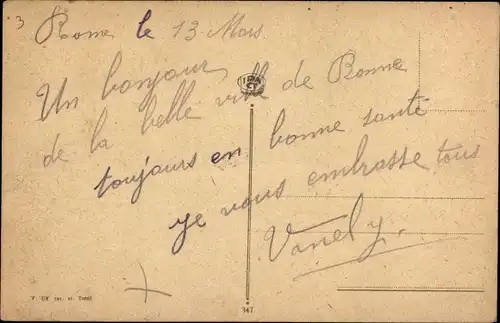 3
Rome le 13 Mars
Un bonjour
de la belle ville de Rome
toujours en bonne santé
je vous embrasse tous
Vanely.
347